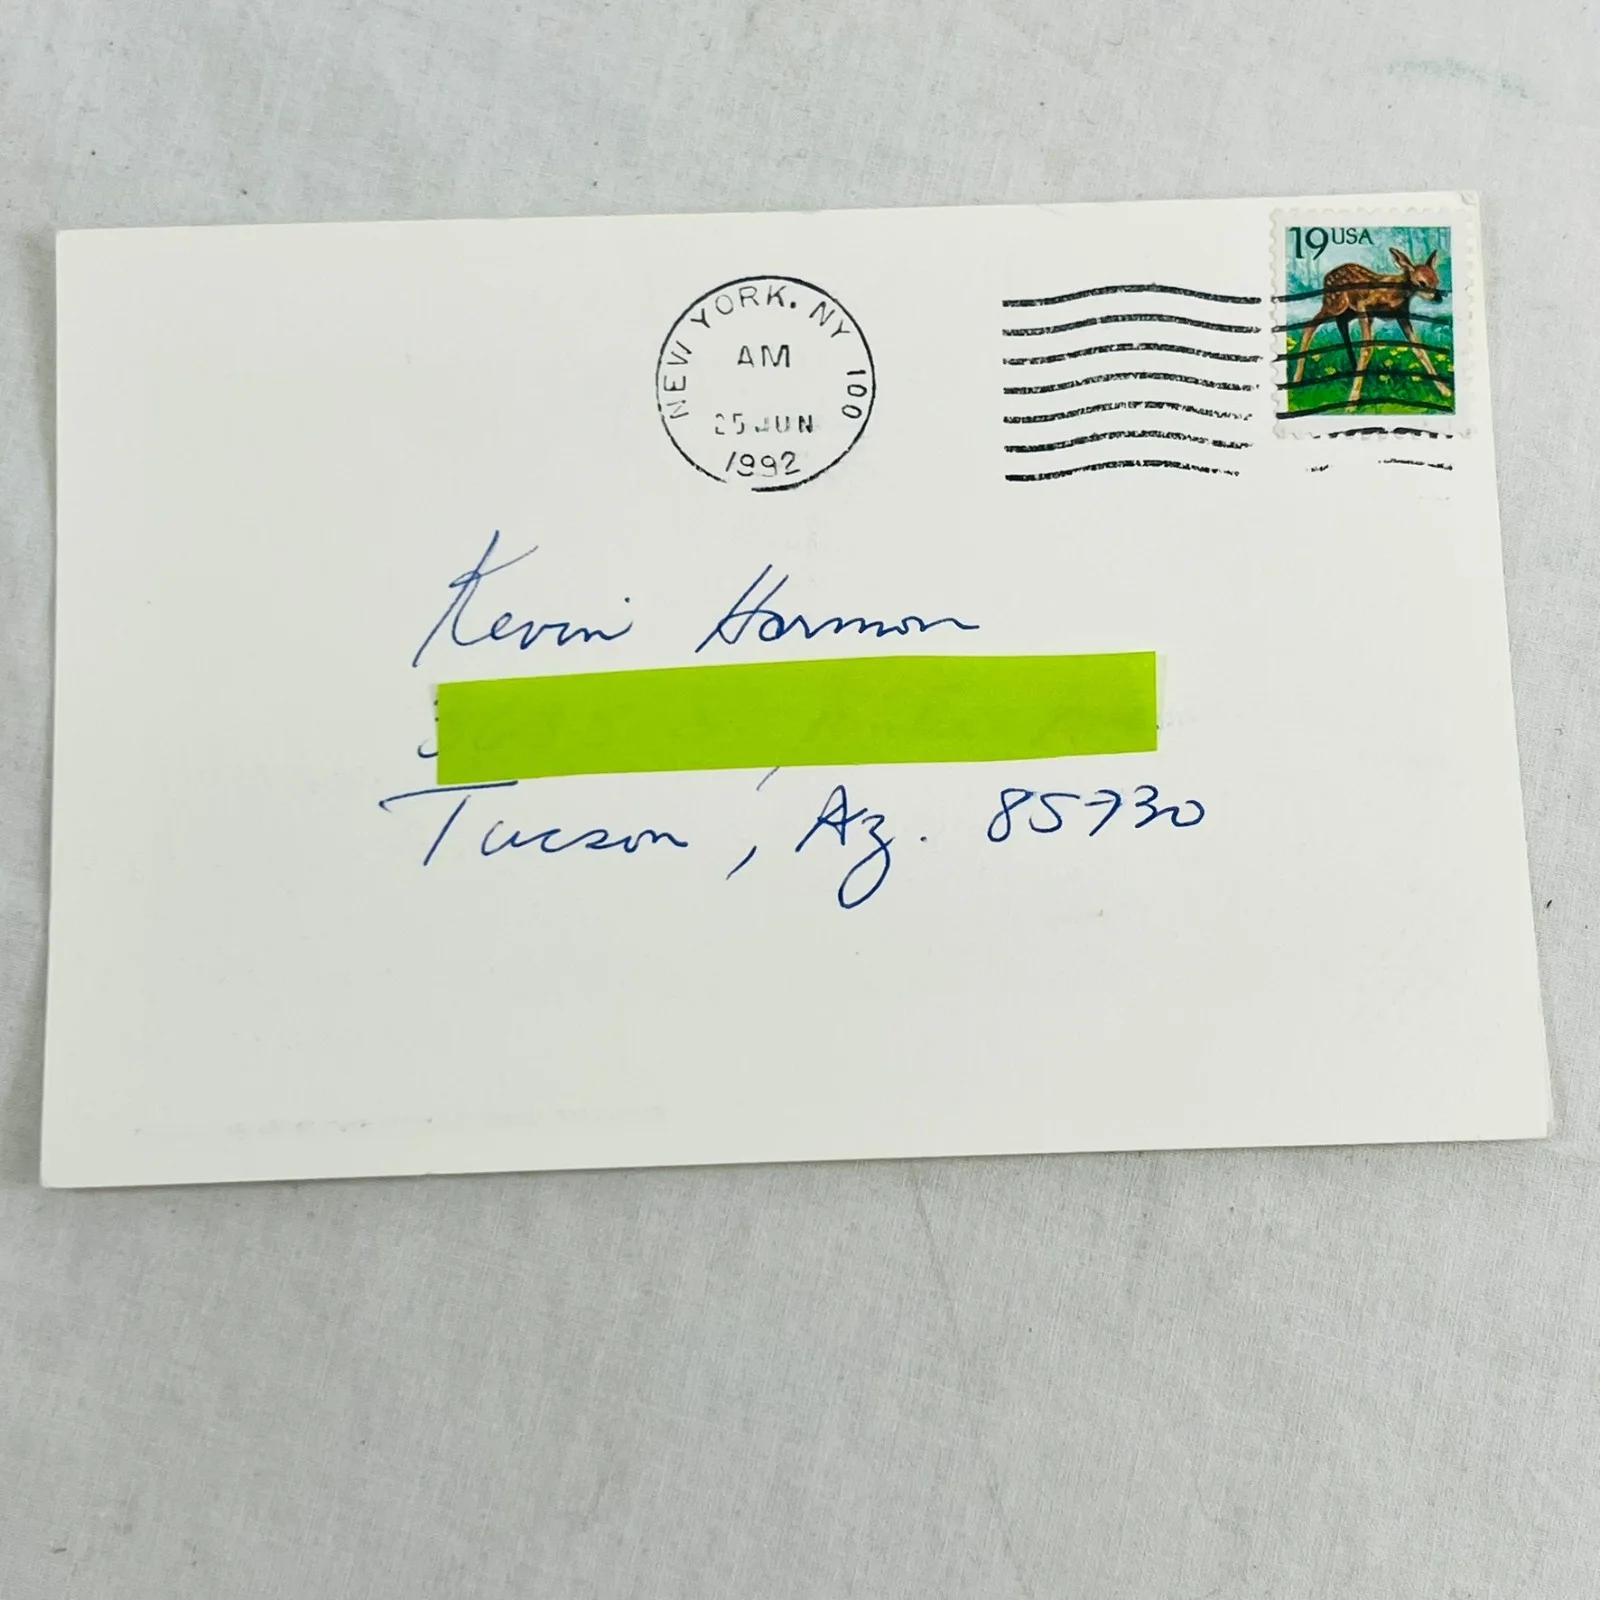 19 USA
NEW YORK, NY 100
AM
25 JUN
1992
Kevin Harmon
Tucson, Az. 85730